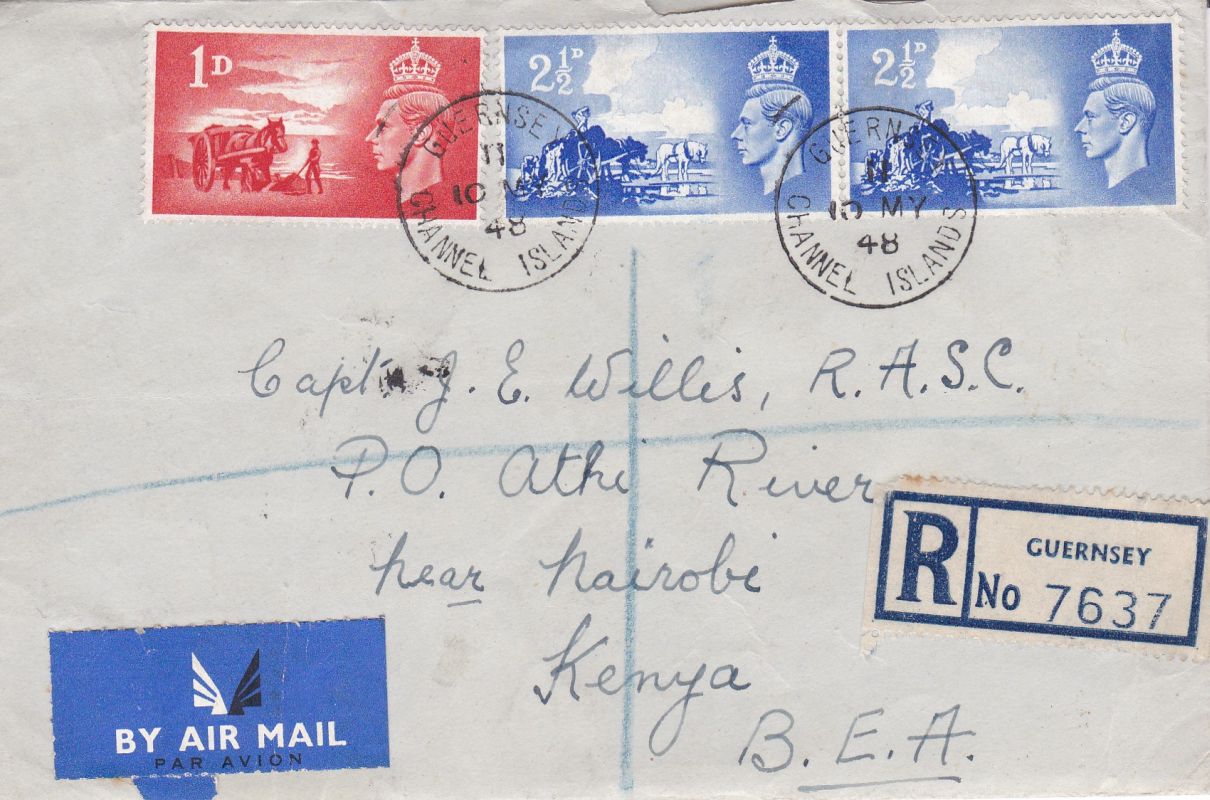 1D
2½D
2½D
GUERNSEY
11
10 MY
48
CHANNEL ISLANDS
GUERNSEY
11
10 MY
48
CHANNEL ISLANDS
Capt. J. E. Willis, R.A.S.C.
P.O. Athi River
near Nairobi
Kenya
B.E.A.
R
GUERNSEY
No 7637
BY AIR MAIL
PAR AVION